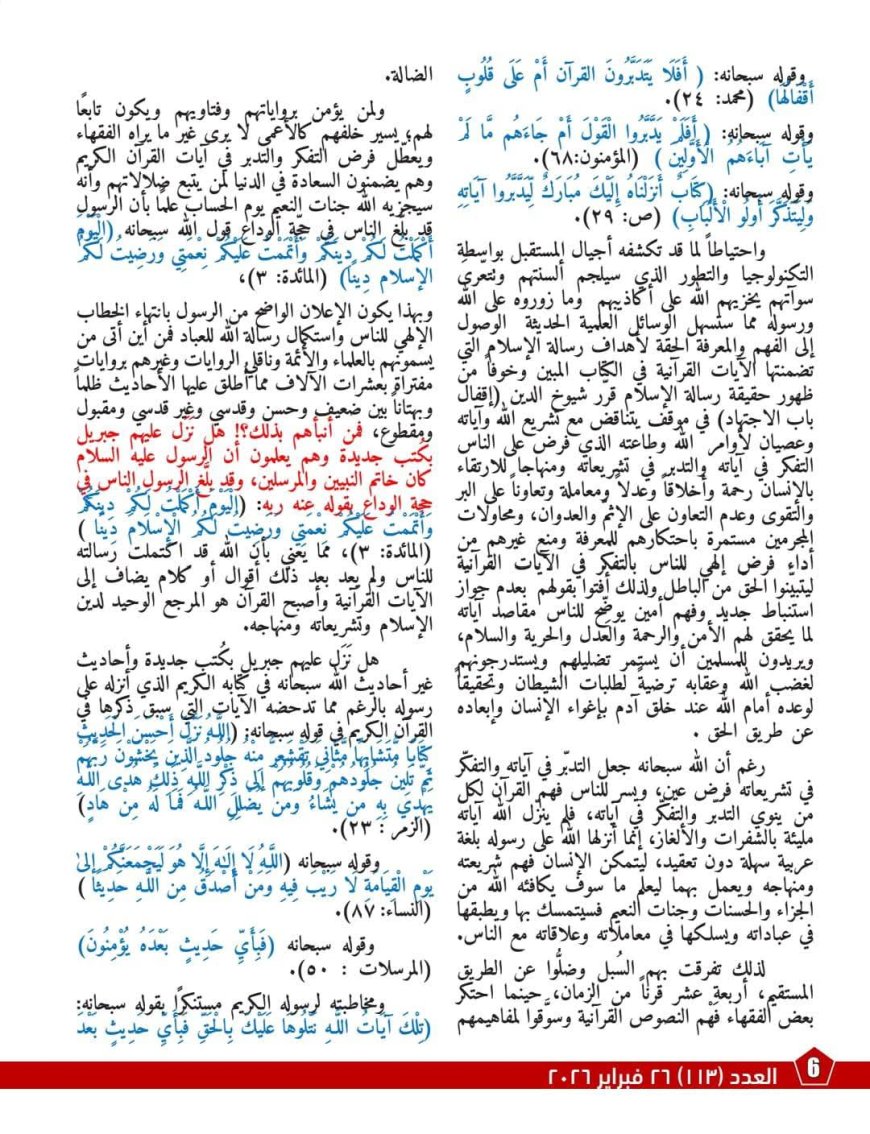 وقوله سبحانه: ( أَفَلَا يَتَدَبَّرُونَ القرآن أَمْ عَلَى قُلُوبٍ
أَقْفَالُهَا) (محمد: ٢٤).
وقوله سبحانه: ( أَفَلَمْ يَدَّبَّرُوا الْقَوْلَ أَمْ جَاءَهُم مَّا لَمْ
يَأْتِ آبَاءَهُمُ الْأَوَّلِينَ ) (المؤمنون:٦٨).
وقوله سبحانه: (كِتَابٌ أَنزَلْنَاهُ إِلَيْكَ مُبَارَكٌ لِّيَدَّبَّرُوا آيَاتِهِ
وَلِيَتَذَكَّرَ أُولُو الْأَلْبَابِ) (ص: ٢٩).
واحتياطاً لما قد تكشفه أجيال المستقبل بواسطة
التكنولوجيا والتطور الذي سيلجم ألسنتهم وتتعرّى
سوآتهم يخزيهم الله على أكاذيبهم وما زوروه على الله
ورسوله مما ستسهل الوسائل العلمية الحديثة الوصول
إلى الفهم والمعرفة الحقة لأهداف رسالة الإسلام التي
تضمنتها الآيات القرآنية في الكتاب المبين وخوفاً من
ظهور حقيقة رسالة الإسلام قرّر شيوخ الدين (إقفال
باب الاجتهاد) في موقف يتناقض مع تشريع الله وآياته
وعصيان لأوامر الله وطاعته الذي فرض على الناس
التفكر في آياته والتدبر في تشريعاته ومنهاجا للارتقاء
بالإنسان رحمة وأخلاقاً وعدلاً ومعاملة وتعاوناً على البر
والتقوى وعدم التعاون على الإثم والعدوان، ومحاولات
المجرمين مستمرة باحتكارهم للمعرفة ومنع غيرهم من
أداء فرض إلهي للناس بالتفكر في الآيات القرآنية
ليتبيّنوا الحق من الباطل ولذلك أفتوا بقولهم بعدم جواز
استنباط جديد وفهم أمين يوضّح للناس مقاصد آياته
لما يحقق لهم الأمن والرحمة والعدل والحرية والسلام،
ويريدون للمسلمين أن يستمر تضليلهم ويستدرجونهم
لغضب الله وعقابه ترضيةً لطلبات الشيطان وتحقيقاً
لوعده أمام الله عند خلق آدم بإغواء الإنسان وإبعاده
عن طريق الحق .
رغم أن الله سبحانه جعل التدبّر في آياته والتفكّر
في تشريعاته فرض عين، ويسر للناس فهم القرآن لكل
من ينوي التدبّر والتفكّر في آياته، فلم ينزل الله آياته
مليئة بالشفرات والألغاز، إنما أنزلها الله على رسوله بلغة
عربية سهلة دون تعقيد، ليتمكن الإنسان فهم شريعته
ومنهاجه ويعمل بهما ليعلم ما سوف يكافئه الله من
الجزاء والحسنات وجنات النعيم فسيتمسك بها ويطبقها
في عباداته ويسلكها في معاملاته وعلاقاته مع الناس.
لذلك تفرقت بهم السُبل وضلُّوا عن الطريق
المستقيم، أربعة عشر قرناً من الزمان، حينما احتكر
بعض الفقهاء فَهْم النصوص القرآنية وسوَّقوا لمفاهيمهم
الضالة.
ولمن يؤمن برواياتهم وفتاويهم ويكون تابعًا
لهم؛ يسير خلفهم كالأعمى لا يرى غير ما يراه الفقهاء
ويعطّل فرض التفكر والتدبر في آيات القرآن الكريم
وهم يضمنون السعادة في الدنيا لمن يتبع ضلالاتهم وأنه
سيجزيه الله جنات النعيم يوم الحساب علمًا بأن الرسول
قد بلّغ الناس في حجّة الوداع قول الله سبحانه (الْيَوْمَ
أَكْمَلْتُ لَكُمْ دِينَكُمْ وَأَتْمَمْتُ عَلَيْكُمْ نِعْمَتِي وَرَضِيتُ لَكُمُ
الإسلام دِينًا) (المائدة: ٣)،
وبهذا يكون الإعلان الواضح من الرسول بانتهاء الخطاب
الإلهي للناس واستكمال رسالة الله للعباد فمن أين أتى من
يسمونهم بالعلماء والأئمة وناقلي الروايات وغيرهم بروايات
مفتراة بعشرات الآلاف مما أطلق عليها الأحاديث ظلماً
وبهتاناً بين ضعيف وحسن وقدسي وغير قدسي ومقبول
ومقطوع، فمن أنبأهم بذلك؟! هل نَزَل عليهم جبريل
بكُتب جديدة وهم يعلمون أن الرسول عليه السلام
كان خاتم النبيين والمرسلين، وقد بلَّغ الرسول الناس في
حجة الوداع بقوله عنه ربه: (الْيَوْمَ أَكْمَلْتُ لَكُمْ دِينَكُمْ
وَأَتْمَمْتُ عَلَيْكُمْ نِعْمَتِي ورضِيتُ لَكُمُ الْإِسْلَامَ دِينًا )
(المائدة: ٣)، مما يعني بأن الله قد اكتملت رسالته
للناس ولم يعد بعد ذلك أقوال أو كلام يضاف إلى
الآيات القرآنية وأصبح القرآن هو المرجع الوحيد لدين
الإسلام وتشريعاته ومنهاجه.
هل نَزَل عليهم جبريل بكُتب جديدة وأحاديث
غير أحاديث الله سبحانه في كتابه الكريم الذي أنزله على
رسوله بالرغم مما تدحضه الآيات التي سبق ذكرها في
القرآن الكريم في قوله سبحانه: (اللَّهُ نَزَّلَ أَحْسَنَ الْحَدِيثِ
كِتَابًا مُّتَشَابِهًا مَّثَانِيَ تَقْشَعِرُّ مِنْهُ جُلُودُ الَّذِينَ يَخْشَوْنَ رَبَّهُمْ
ثُمَّ تَلِينُ جُلُودُهُمْ وَقُلُوبُهُمْ إِلَى ذِكْرِ اللَّهِ ذَلِكَ هُدَى اللَّهِ
يَهْدِي بِهِ مَن يَشَاءُ وَمَن يُضْلِلِ اللَّهُ فَمَا لَهُ مِنْ هَادٍ)
(الزمر : ٢٣).
وقوله سبحانه (اللَّهُ لَا إِلَهَ إِلَّا هُوَ لَيَجْمَعَنَّكُمْ إِلَى
يَوْمِ الْقِيَامَةِ لَا رَيْبَ فِيهِ وَمَنْ أَصْدَقُ مِنَ اللَّهِ حَدِيثًا )
(النساء: ٨٧).
وقوله سبحانه (فَبِأَيِّ حَدِيثٍ بَعْدَهُ يُؤْمِنُونَ)
(المرسلات : ٥٠).
ومخاطبته لرسوله الكريم مستنكرًا بقوله سبحانه:
(تِلْكَ آيَاتُ اللَّهِ نَتْلُوهَا عَلَيْكَ بِالْحَقِّ فَبِأَيِّ حَدِيثٍ بَعْدَ
6 العدد (١١٣) ٢٦ فبراير ٢٠٢٦